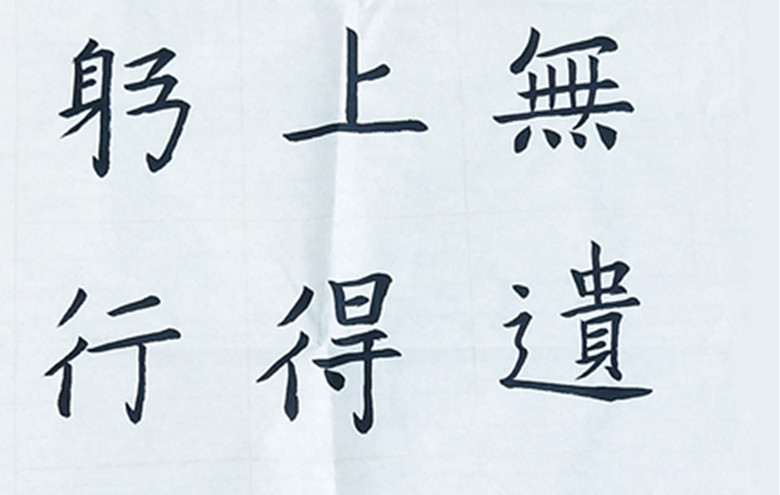 無遺
上得
躬行